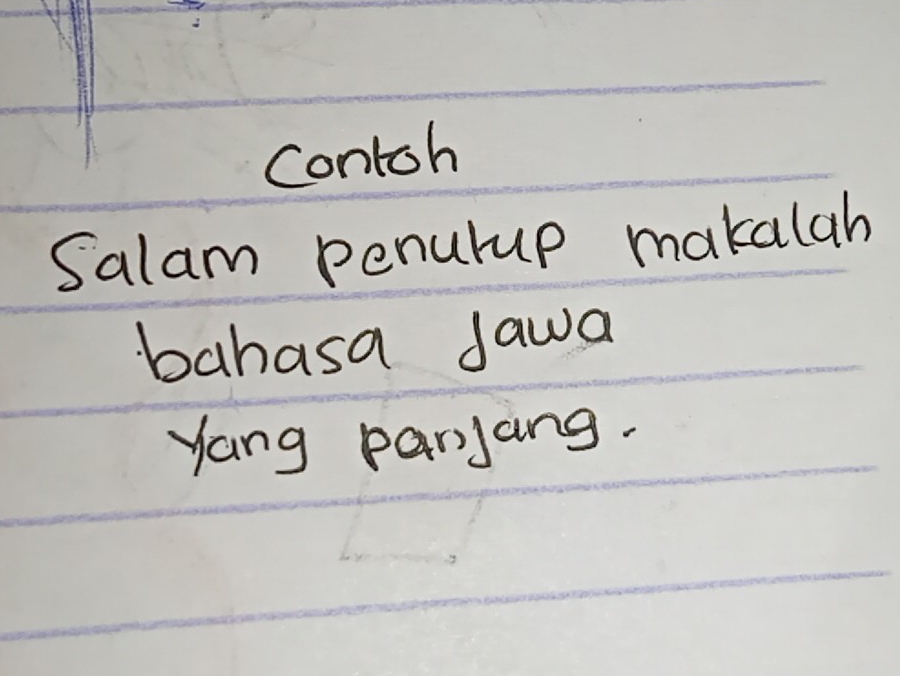 Contoh
Salam penutup makalah
bahasa Jawa
Yang panjang.